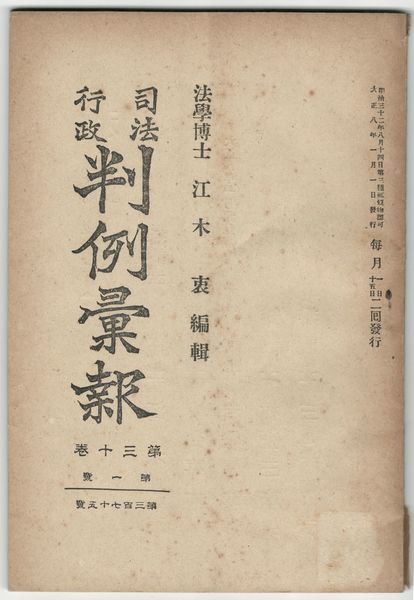 明治三十二年八月十四日第三種郵便物認可
大正八年一月一日發行
每月一日十五日二囘發行
法學博士 江木衷編輯
司法
行政
判例彙報
第三十卷
第一號
第三百七十五號